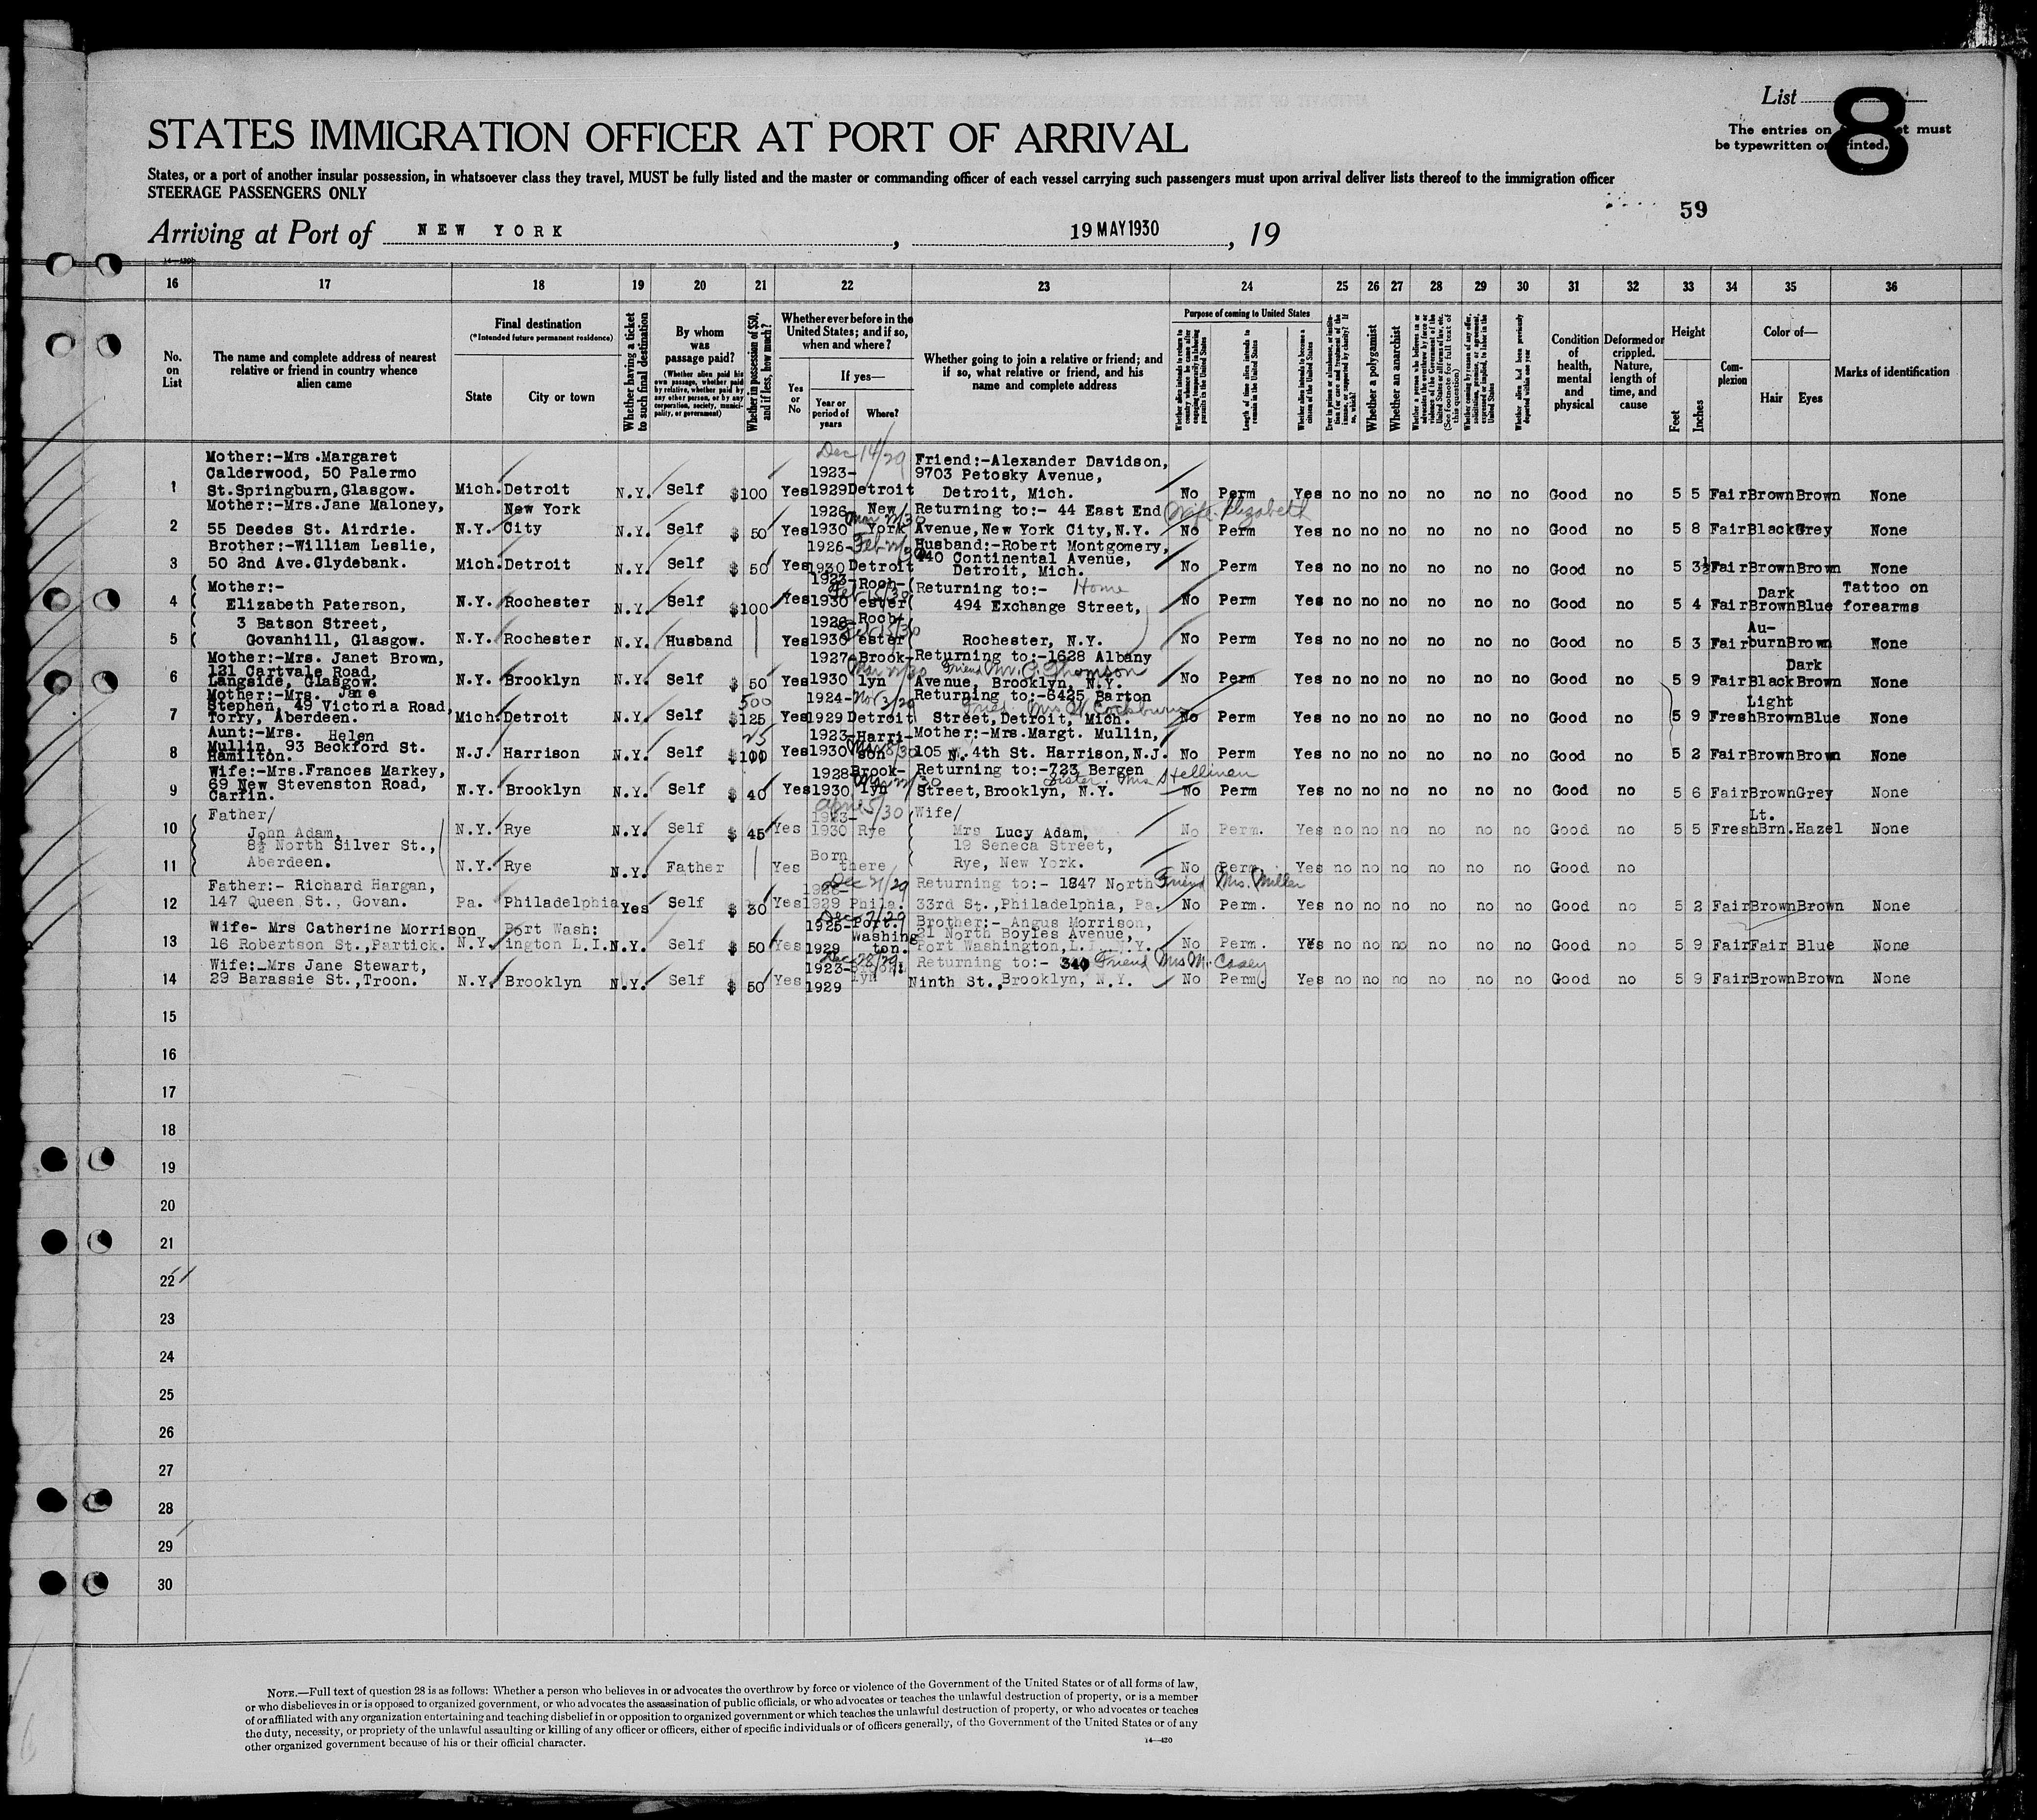 List
8
The entries on must
be typewritten or printed.
STATES IMMIGRATION OFFICER AT PORT OF ARRIVAL
States, or a port of another insular possession, in whatsoever class they travel, MUST be fully listed and the master or commanding officer of each vessel carrying such passengers must upon arrival deliver lists thereof to the immigration officer
STEERAGE PASSENGERS ONLY
59
Arriving at Port of NEW YORK , 19 MAY 1930 , 19
16 17 18 19 20 21 22 23 24 25 26 27 28 29 30 31 32 33 34 35 36
No. on List
The name and complete address of nearest relative or friend in country whence alien came
Final destination
(*Intended future permanent residence)
State
City or town
Whether having a ticket to such final destination
By whom was passage paid?
(Whether alien paid his own passage, whether paid by relative, whether paid by any other person, or by any corporation, society, municipality, or government)
Whether in possession of $50, and if less, how much?
Whether ever before in the United States; and if so, when and where?
Yes or No
If yes—
Year or period of years
Where?
Whether going to join a relative or friend; and if so, what relative or friend, and his name and complete address
Purpose of coming to United States
Whether alien intends to return to country whence he came after engaging temporarily in laboring pursuits in the United States
Length of time alien intends to remain in the United States
Whether alien intends to become a citizen of the United States
Ever in prison or almshouse, or institution for care and treatment of the insane, or supported by charity? If so, which?
Whether a polygamist
Whether an anarchist
Whether a person who believes in or advocates the overthrow by force or violence of the Government of the United States or all forms of law, etc. (See footnote for full text of this question)
Whether coming by reason of any offer, solicitation, promise, or agreement, expressed or implied, to labor in the United States
Whether alien had been previously deported within one year
Condition of health, mental and physical
Deformed or crippled. Nature, length of time, and cause
Height
Feet
Inches
Complexion
Color of—
Hair
Eyes
Marks of identification
1 Mother:-Mrs.Margaret Calderwood, 50 Palermo St.Springburn,Glasgow. Mich. Detroit N.Y. Self $100 Yes Dec 14/29 1923-1929 Detroit Friend:-Alexander Davidson, 9703 Petosky Avenue, Detroit, Mich. No Perm Yes no no no no no no Good no 5 5 Fair Brown Brown None
2 Mother:-Mrs.Jane Maloney, 55 Deedes St. Airdrie. N.Y. New York City N.Y. Self $ 50 Yes 1926-1930 New York Returning to:- 44 East End Avenue,New York City,N.Y. Wife Elizabeth No Perm Yes no no no no no no Good no 5 8 Fair Black Grey None
3 Brother:-William Leslie, 50 2nd Ave.Clydebank. Mich. Detroit N.Y. Self $ 50 Yes 1926-1930 Detroit Husband:-Robert Montgomery, 440 Continental Avenue, Detroit, Mich. No Perm Yes no no no no no no Good no 5 3½ Fair Brown Brown None
4 Mother:- Elizabeth Paterson, N.Y. Rochester N.Y. Self $100 Yes 1923-1930 Rochester Feb 15/30 Returning to:- Home 494 Exchange Street, No Perm Yes no no no no no no Good no 5 4 Fair Dark Brown Blue Tattoo on forearms
5 3 Batson Street, Govanhill, Glasgow. N.Y. Rochester N.Y. Husband Yes 1928-1930 Rochester Feb 15/30 Rochester, N.Y. No Perm Yes no no no no no no Good no 5 3 Fair Auburn Brown None
6 Mother:-Mrs. Janet Brown, 121 Cartvale Road, Langside, Glasgow. N.Y. Brooklyn N.Y. Self $ 50 Yes 1927-1930 Brooklyn Returning to:-1628 Albany Avenue, Brooklyn, N.Y. Friend Thomson No Perm Yes no no no no no no Good no 5 9 Fair Black Dark Brown None
7 Mother:-Mrs. Jane Stephen, 49 Victoria Road, Torry, Aberdeen. Mich. Detroit N.Y. Self 500 $125 Yes 1924-1929 Nov 3/29 Detroit Returning to:-6425 Barton Street,Detroit, Mich. Cockburn No Perm Yes no no no no no no Good no 5 9 Fresh Light Brown Blue None
8 Aunt:-Mrs. Helen Mullin, 93 Beckford St. Hamilton. N.J. Harrison N.Y. Self 25 $100 Yes 1923-1930 Harrison Mother:-Mrs.Margt. Mullin, 105 N. 4th St. Harrison,N.J. No Perm Yes no no no no no no Good no 5 2 Fair Brown Brown None
9 Wife:-Mrs.Frances Markey, 69 New Stevenston Road, Carfin. N.Y. Brooklyn N.Y. Self $ 40 Yes 1928-1930 Brooklyn Returning to:-723 Bergen Street,Brooklyn, N.Y. Sister Mrs No Perm Yes no no no no no no Good no 5 6 Fair Brown Grey None
10 Father/ John Adam, N.Y. Rye N.Y. Self $ 45 Yes 1923-1930 Rye Wife/ Mrs Lucy Adam, No Perm. Yes no no no no no no Good no 5 5 Fresh Lt. Brn. Hazel None
11 8½ North Silver St., Aberdeen. N.Y. Rye N.Y. Father Yes Born there 19 Seneca Street, Rye, New York. No Perm. Yes no no no no no no Good no
12 Father:- Richard Hargan, 147 Queen St., Govan. Pa. Philadelphia Yes Self $ 30 Yes 1929 Phila. Dec 21/29 Returning to:- 1847 North 33rd St.,Philadelphia, Pa. Friend Mrs. Miller No Perm. Yes no no no no no no Good no 5 2 Fair Brown Brown None
13 Wife- Mrs Catherine Morrison 16 Robertson St.,Partick. N.Y. Port Washington L.I. N.Y. Self $ 50 Yes 1925-1929 Port Washington. Brother:- Angus Morrison, 21 North Boyles Avenue, Port Washington,L.I. N.Y. No Perm. Yes no no no no no no Good no 5 9 Fair Fair Blue None
14 Wife:-Mrs Jane Stewart, 29 Barassie St.,Troon. N.Y. Brooklyn N.Y. Self $ 50 Yes Dec 28/29 1923-1929 Brooklyn Returning to:- 340 Ninth St.,Brooklyn, N.Y. Friend Mrs M. Casey No Perm. Yes no no no no no no Good no 5 9 Fair Brown Brown None
15
16
17
18
19
20
21
22
23
24
25
26
27
28
29
30
NOTE.—Full text of question 28 is as follows: Whether a person who believes in or advocates the overthrow by force or violence of the Government of the United States or of all forms of law,
or who disbelieves in or is opposed to organized government, or who advocates the assassination of public officials, or who advocates or teaches the unlawful destruction of property, or is a member
of or affiliated with any organization entertaining and teaching disbelief in or opposition to organized government or which teaches the unlawful destruction of property, or who advocates or teaches
the duty, necessity, or propriety of the unlawful assaulting or killing of any officer or officers, either of specific individuals or of officers generally, of the Government of the United States or of any
other organized government because of his or their official character.
14—420